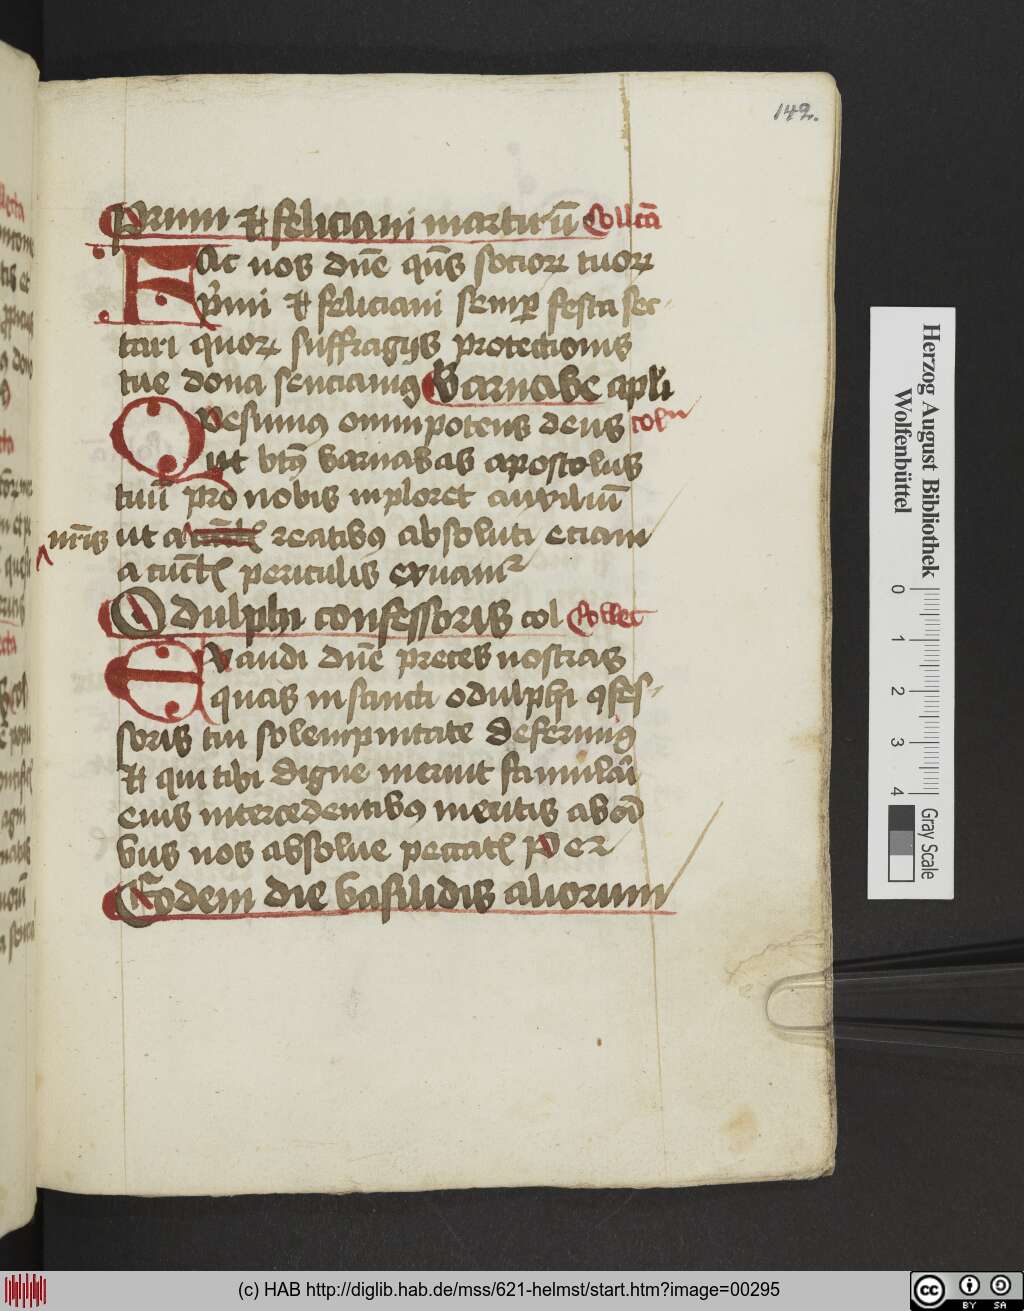 142.
Primi et feliciani martirū Collcā
Fac nos dn̄e qūs socioꝝ tuoꝝ
p̄mi et feliciani semꝑ festa sec-
tari quoꝝ suffragijs protectionis
tue dona senciamꝰ Barnabe apl̄i
Qvesumꝰ omnipotens deus colʳ
ut btꝰ barnabas apostolus
tuū pro nobis inploret auxiliū
nr̄is ut a reatibꝰ absoluti eciam
a cūctꝭ periculis exuamʳ
Odulphi confessoris col Collec
Exaudi dn̄e preces nostras
quas in sancti odulphi ꝯfes-
soris tui solempnitate deferimꝰ
et qui tibi digne meruit famulari
eius intercedentibꝰ meritis ab oī
bus nos absolue peccatꝭ Per
Eodem die basilidis aliorum
Herzog August Bibliothek
Wolfenbüttel
0 1 2 3 4
Gray Scale
(c) HAB http://diglib.hab.de/mss/621-helmst/start.htm?image=00295
cc BY SA